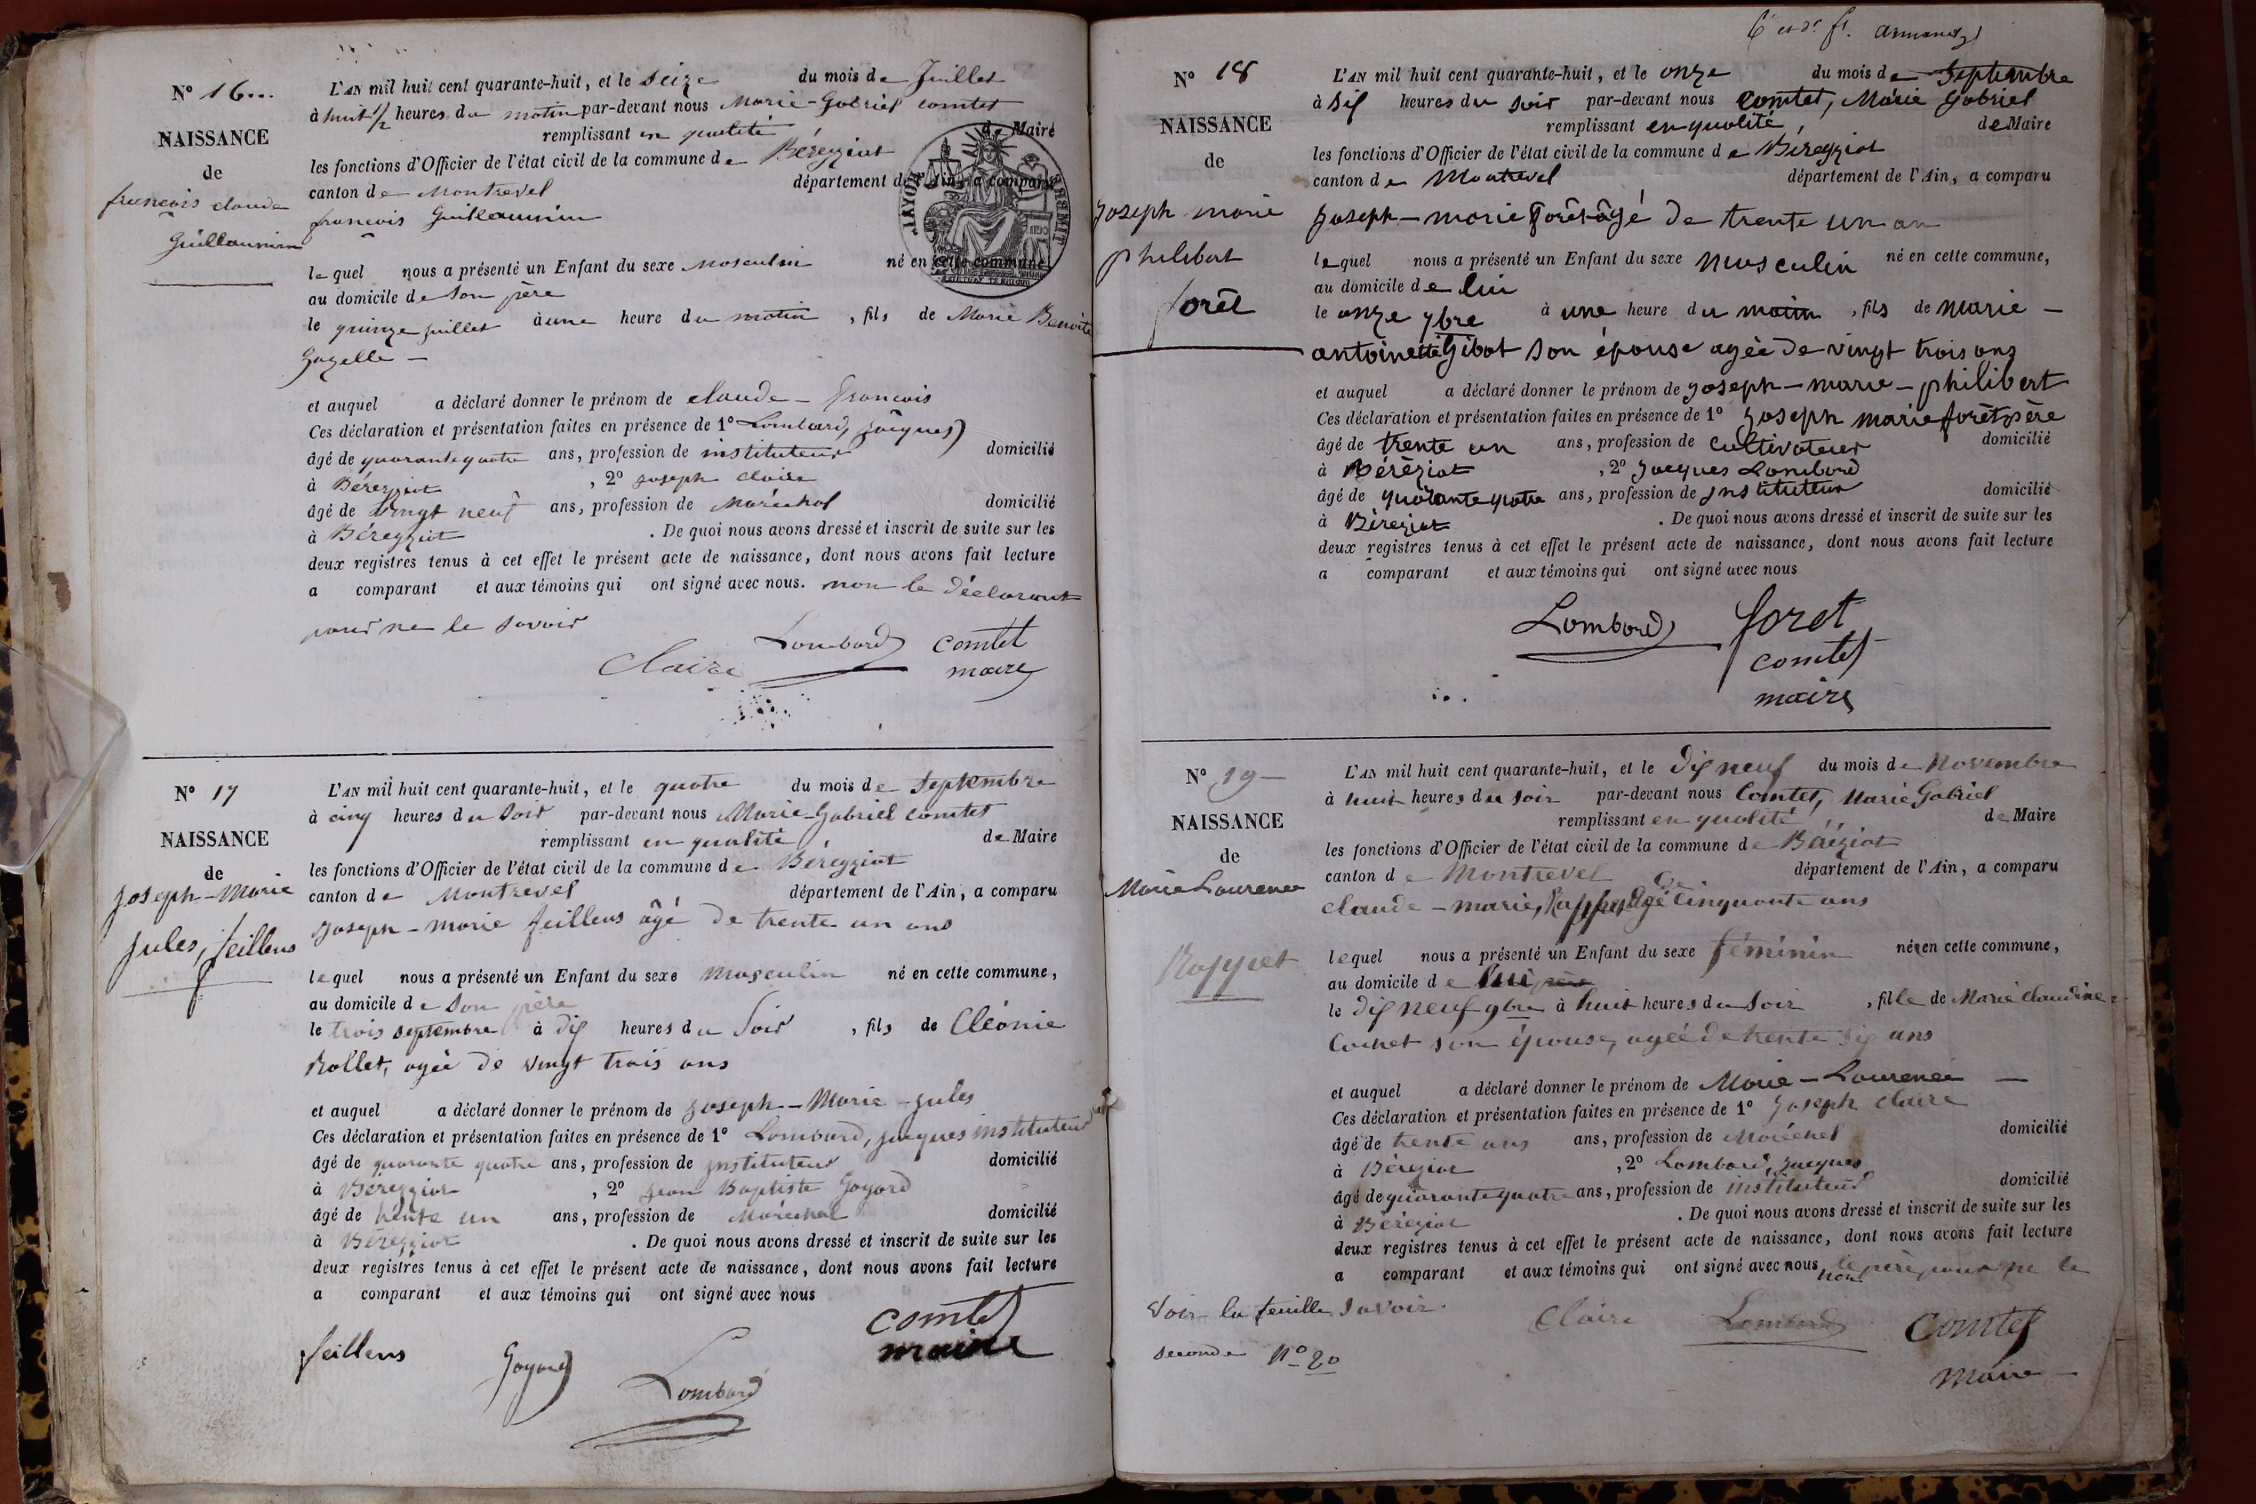 N° 16...
NAISSANCE
de
francois claude
Guillaumin
L'AN mil huit cent quarante-huit, et le Seize du mois de Juillet
à huit 1/2 heures du matin par-devant nous Marie-Gabriel comtet
remplissant en qualité de Maire
les fonctions d'Officier de l'état civil de la commune de Béreyziat
canton de Montrevel département de l'Ain, a comparu
francois Guillaumin
lequel nous a présenté un Enfant du sexe Masculin né en cette commune,
au domicile de Son père
le quinze juillet à une heure du matin, fils de Marie Benoite
Gazelle —
et auquel a déclaré donner le prénom de claude - francois
Ces déclaration et présentation faites en présence de 1° Lombard, jacques
âgé de quarante quatre ans, profession de instituteur domicilié
à Béreyziat, 2° joseph claire
âgé de vingt neuf ans, profession de Maréchal domicilié
à Béreyziat. De quoi nous avons dressé et inscrit de suite sur les
deux registres tenus à cet effet le présent acte de naissance, dont nous avons fait lecture
a comparant et aux témoins qui ont signé avec nous. non le déclarant
pour ne le savoir
Claire Lombard comtet
maire
N° 17
NAISSANCE
de
Joseph-Marie
Jules, feillens
L'AN mil huit cent quarante-huit, et le quatre du mois de Septembre
à cinq heures du Soir par-devant nous Marie-Gabriel comtet
remplissant en qualité de Maire
les fonctions d'Officier de l'état civil de la commune de Béreyziat
canton de Montrevel département de l'Ain, a comparu
Joseph-marie feillens âgé de trente un ans
lequel nous a présenté un Enfant du sexe Masculin né en cette commune,
au domicile de Son père
le trois septembre à dix heures du Soir, fils de Cléonie
Rollet, agée de vingt trois ans
et auquel a déclaré donner le prénom de Joseph-Marie-Jules
Ces déclaration et présentation faites en présence de 1° Lombard, jacques instituteur
âgé de quarante quatre ans, profession de instituteur domicilié
à Béreyziat, 2° jean Baptiste Goyard
âgé de trente un ans, profession de Maréchal domicilié
à Béreyziat. De quoi nous avons dressé et inscrit de suite sur les
deux registres tenus à cet effet le présent acte de naissance, dont nous avons fait lecture
a comparant et aux témoins qui ont signé avec nous
comtet
feillens Goyard Lombard maire
N° 18
NAISSANCE
de
Joseph marie
philibert
forêt
L'AN mil huit cent quarante-huit, et le onze du mois de Septembre
à dix heures du Soir par-devant nous Comtet, Marie Gabriel
remplissant en qualité de Maire
les fonctions d'Officier de l'état civil de la commune de Béreyziat
canton de Montrevel département de l'Ain, a comparu
Joseph-marie forêt âgé de trente un an
lequel nous a présenté un Enfant du sexe Musculin né en cette commune,
au domicile de lui
le onze 7bre à une heure du matin, fils de marie-
antoinette Gibot son épouse agée de vingt trois ans
et auquel a déclaré donner le prénom de joseph-marie-philibert
Ces déclaration et présentation faites en présence de 1° Joseph marie forêt père
âgé de trente un ans, profession de cultivateur domicilié
à Béréziat, 2° Jacques Lombard
âgé de quarante quatre ans, profession de Instituteur domicilié
à Béreziat. De quoi nous avons dressé et inscrit de suite sur les
deux registres tenus à cet effet le présent acte de naissance, dont nous avons fait lecture
a comparant et aux témoins qui ont signé avec nous
Lombard foret
comtet
maire
N° 19
NAISSANCE
de
Marie Laurence
Rappet
L'AN mil huit cent quarante-huit, et le dix neuf du mois de Novembre
à huit heures du Soir par-devant nous Comtet, Marie Gabriel
remplissant en qualité de Maire
les fonctions d'Officier de l'état civil de la commune de Béréziat
canton de Montrevel département de l'Ain, a comparu
claude-marie, Rappet, Agé de Cinquante ans
lequel nous a présenté un Enfant du sexe féminin née en cette commune,
au domicile de lui
le dix neuf 9bre à huit heures du Soir, fille de Marie Claudine
Cochet son épouse, agée de trente six ans
et auquel a déclaré donner le prénom de Marie-Laurence —
Ces déclaration et présentation faites en présence de 1° Joseph Claire
âgé de trente ans ans, profession de Maréchal domicilié
à Béreziat, 2° Lombard, Jacques
âgé de quarante quatre ans, profession de instituteur domicilié
à Béréziat. De quoi nous avons dressé et inscrit de suite sur les
deux registres tenus à cet effet le présent acte de naissance, dont nous avons fait lecture
a comparant et aux témoins qui ont signé avec nous non le père pour ne le
savoir.
Voir la feuille
seconde N° 20
Claire Lombard Comtet
Maire